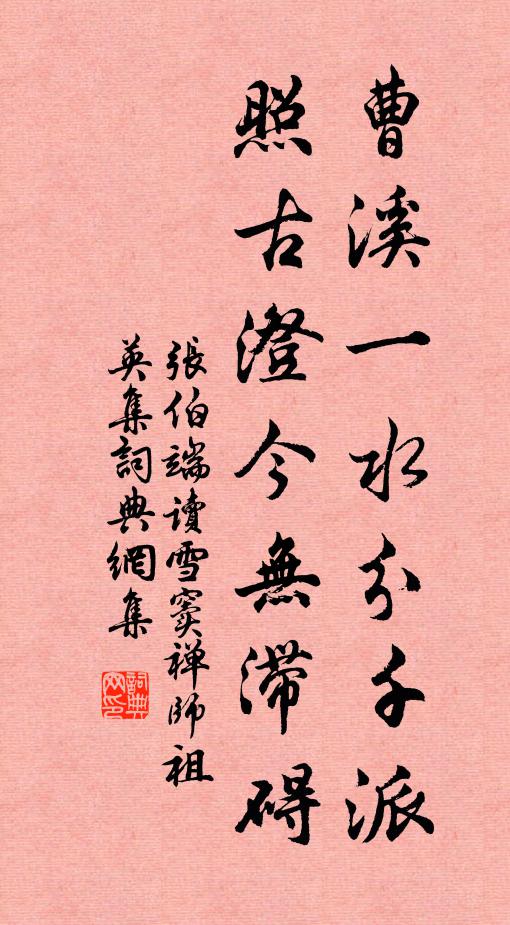 曹溪一水分千派
照古澄今無滯碍
張伯端读雪竇禅師祖
英集詞典網集
詞典網印